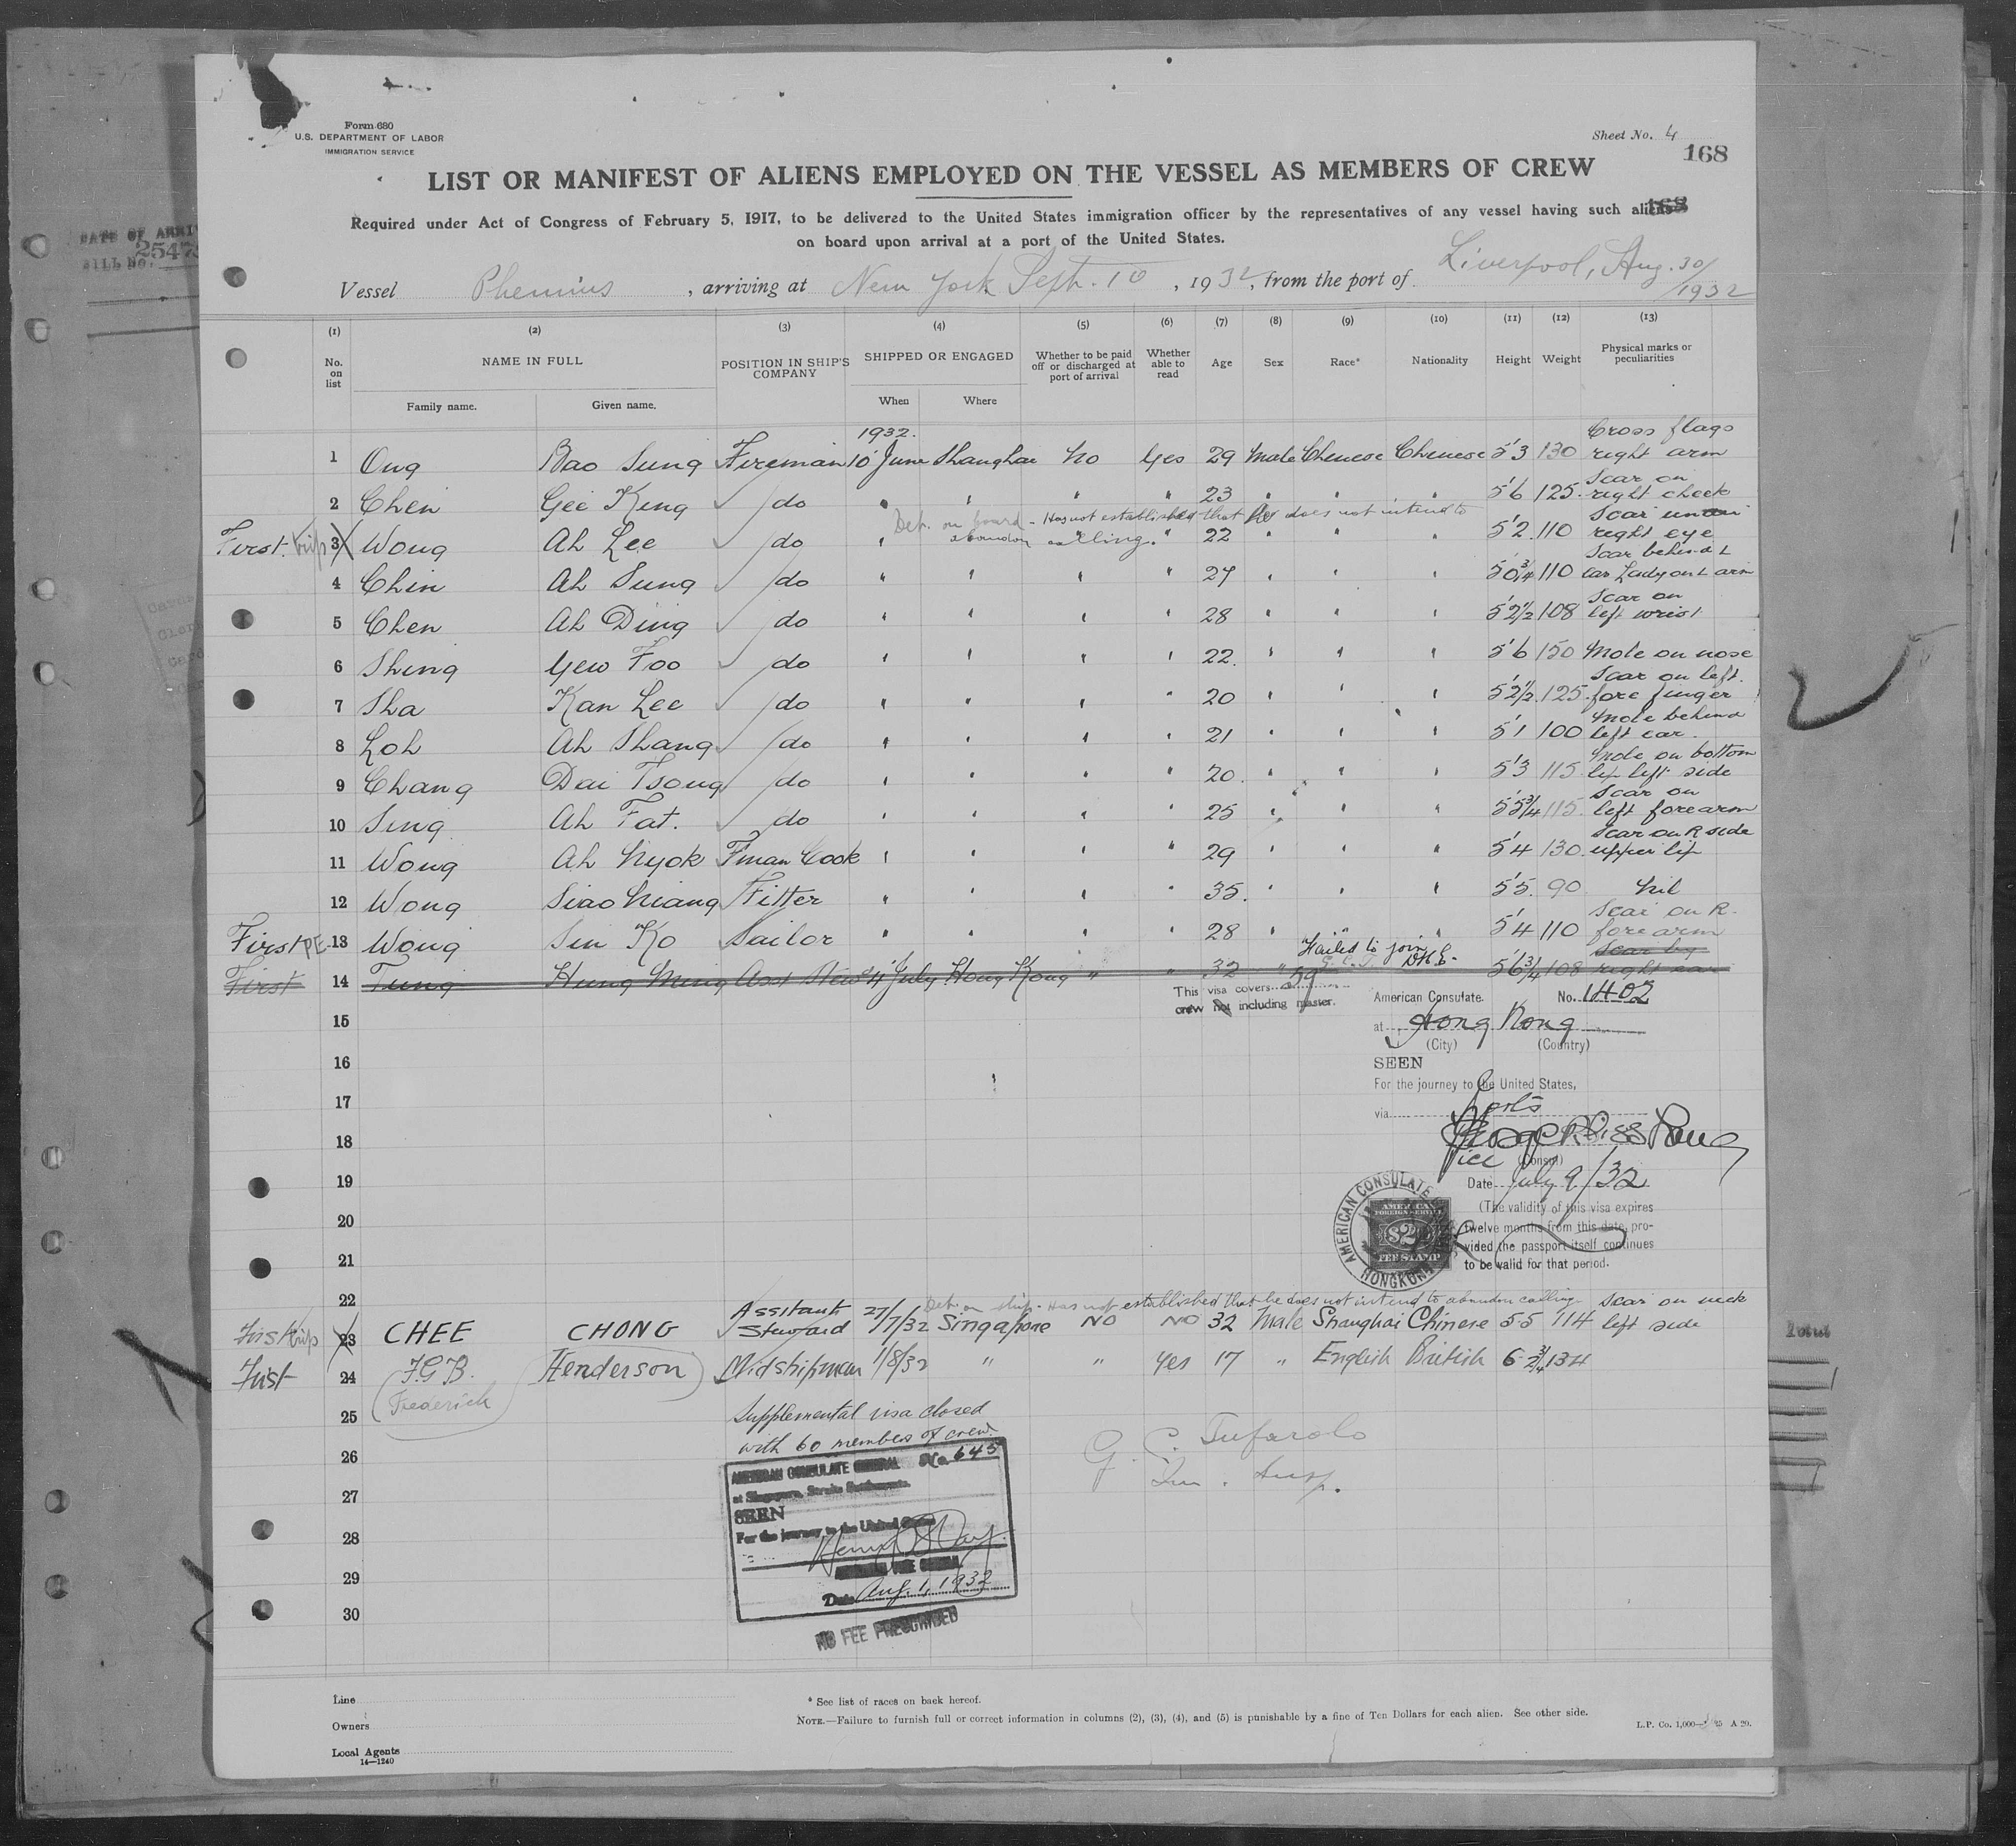 Form 680
U.S. DEPARTMENT OF LABOR
IMMIGRATION SERVICE
Sheet No. 4
168
LIST OR MANIFEST OF ALIENS EMPLOYED ON THE VESSEL AS MEMBERS OF CREW
Required under Act of Congress of February 5, 1917, to be delivered to the United States immigration officer by the representatives of any vessel having such aliens
on board upon arrival at a port of the United States.
Vessel Phemius, arriving at New York Sept. 10, 1932, from the port of Liverpool, Aug. 30/1932
(1) (2) (3) (4) (5) (6) (7) (8) (9) (10) (11) (12) (13)
No. on list NAME IN FULL POSITION IN SHIP'S COMPANY SHIPPED OR ENGAGED Whether to be paid off or discharged at port of arrival Whether able to read Age Sex Race* Nationality Height Weight Physical marks or peculiarities
Family name. Given name. When Where
1932.
1 Ong Bao Sung Fireman 10 June Shanghai No Yes 29 Male Chinese Chinese 5'3 130 Cross flags right arm
2 Chen Gee King do " " " " 23 " " " 5'6 125 Scar on right cheek
Det. on board - Has not established that he does not intend to abandon calling.
First trip 3 Wong Ah Lee do " " " 22 " " " 5'2 110 Scar under right eye
4 Chin Ah Sung do " " " " 27 " " " 5'0¾ 110 Scar behind L ear Lady on L arm
5 Chen Ah Ding do " " " " 28 " " " 5'2½ 108 Scar on left wrist
6 Shing Yew Foo do " " " " 22 " " " 5'6 150 Mole on nose
7 Sha Kan Lee do " " " " 20 " " " 5'2½ 125 Scar on left fore finger
8 Loh Ah Shang do " " " " 21 " " " 5'1 100 Mole behind left ear
9 Chang Dai Tsong do " " " " 20 " " " 5'3 115 Mole on bottom lip left side
10 Sing Ah Fat. do " " " " 25 " " " 5'5¾ 115 Scar on left forearm
11 Wong Ah Nyok F'man Cook " " " " 29 " " " 5'4 130 Scar on R side upper lip
12 Wong Siao Niang Fitter " " " " 35 " " " 5'5 90 Nil
First PE 13 Wong Sin Ko Sailor " " " " 28 " " " 5'4 110 Scar on R. forearm
Failed to join
First 14 Tung Hung Ming Asst Stew 4 July Hong Kong " " 32 " 5'6¾ 108 Scar by right ear
This visa covers 59
crew including master.
15
16
17
18
19
20
21
22
American Consulate. No. 1402
at Hong Kong
(City) (Country)
SEEN
For the journey to the United States,
via ports
Vice (Consul)
Date July 9/32
(The validity of this visa expires
twelve months from this date, pro-
vided the passport itself continues
to be valid for that period.
AMERICAN CONSULATE
HONGKONG
AMERICAN
FOREIGN SERVICE
$2
FEE STAMP
Det. on ship - Has not established that he does not intend to abandon calling
First trip 23 CHEE CHONG Assitant Steward 27/7/32 Singapore NO NO 32 Male Shanghai Chinese 5 5 114 Scar on neck left side
First 24 F.G.B. Henderson Midshipman 1/8/32 " " Yes 17 " English British 6-2¾ 134
(Frederick)
25
26
27
28
29
30
Supplemental visa closed
with 60 members of crew.
G. C. Tufarolo
Im. Insp.
AMERICAN CONSULATE GENERAL No. 645
at Singapore, Straits Settlements.
SEEN
For the journey to the United States
AMERICAN VICE CONSUL
Date Aug. 1, 1932
NO FEE PRESCRIBED
Line
Owners
Local Agents
14—1240
* See list of races on back hereof.
NOTE.—Failure to furnish full or correct information in columns (2), (3), (4), and (5) is punishable by a fine of Ten Dollars for each alien. See other side.